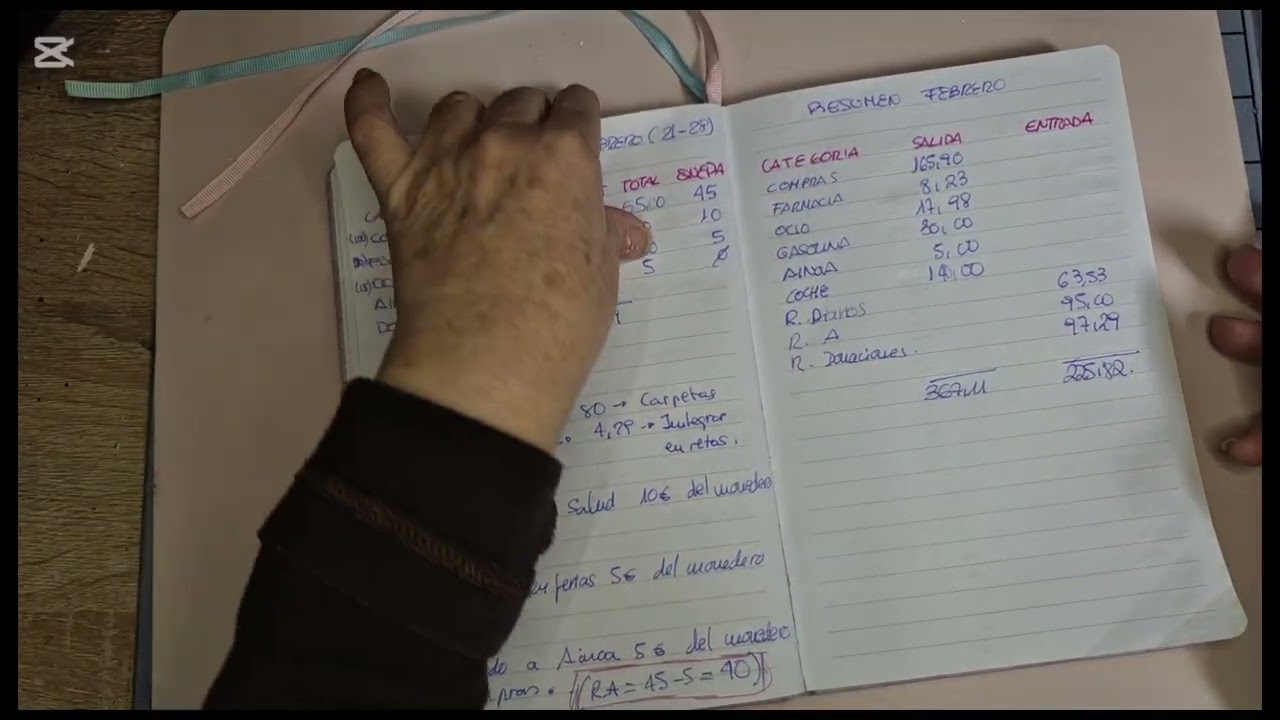 BRERO (21-28)
TOTAL QUEDA
65,0 45
10
5
5 ø
(100) CO
(15)
AI
80 → Carpetas
4,29 → Integrar
en retos.
Salud 10€ del monedero
en ferias 5€ del monedero
do a Ainoa 5€ del monedero
pras. (RA = 45-5 = 40)
RESUMEN FEBRERO
CATEGORIA SALIDA ENTRADA
COMPRAS 165,90
FARMACIA 8,23
OCIO 17,98
GASOLINA 30,00
AINOA 5,00
COCHE 140,00
R. Diarios 63,53
R. A 95,00
R. Donaciones. 97,29
367,11 225,82.